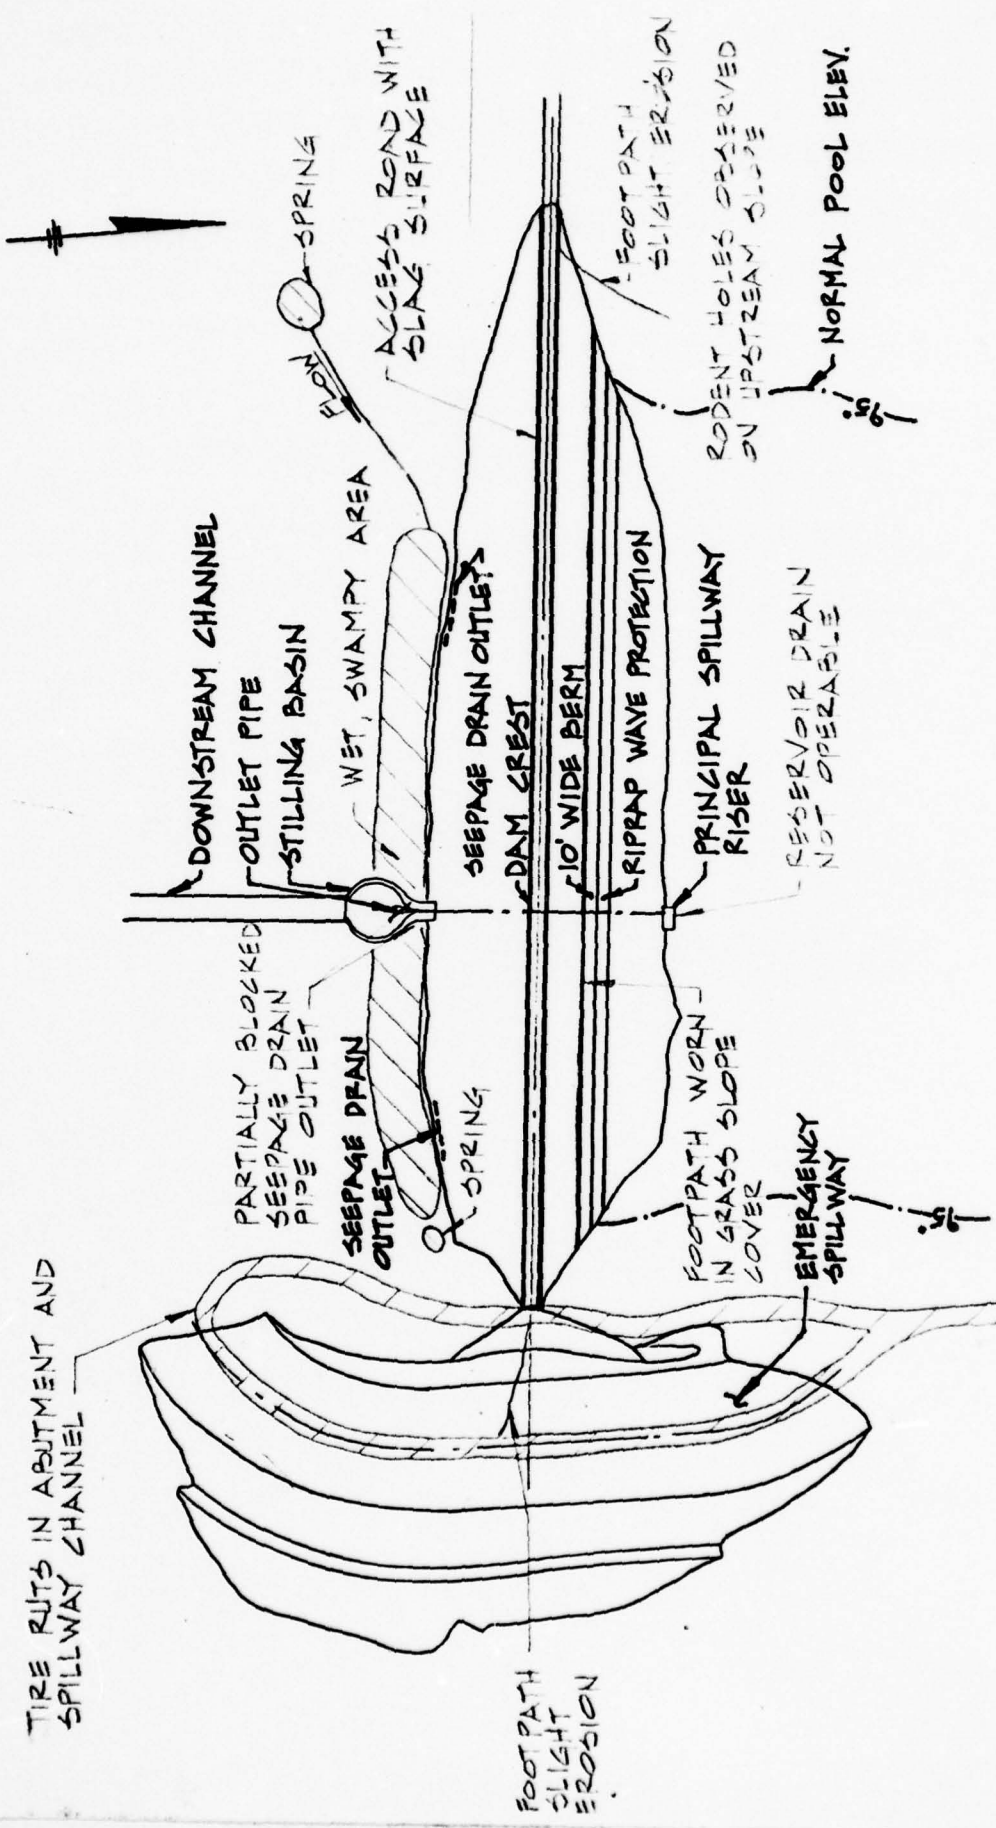 TIRE RUTS IN ABUTMENT AND
SPILLWAY CHANNEL
DOWNSTREAM CHANNEL
OUTLET PIPE
STILLING BASIN
WET, SWAMPY AREA
FLOW
SPRING
ACCESS ROAD WITH
SLAG SURFACE
PARTIALLY BLOCKED
SEEPAGE DRAIN
PIPE OUTLET
SEEPAGE DRAIN
OUTLET
SPRING
SEEPAGE DRAIN OUTLET
DAM CREST
10' WIDE BERM
RIPRAP WAVE PROTECTION
PRINCIPAL SPILLWAY
RISER
RESERVOIR DRAIN
NOT OPERABLE
FOOTPATH
SLIGHT EROSION
RODENT HOLES OBSERVED
ON UPSTREAM SLOPE
NORMAL POOL ELEV.
95°
FOOTPATH WORN
IN GRASS SLOPE
COVER
EMERGENCY
SPILLWAY
95°
FOOTPATH
SLIGHT
EROSION